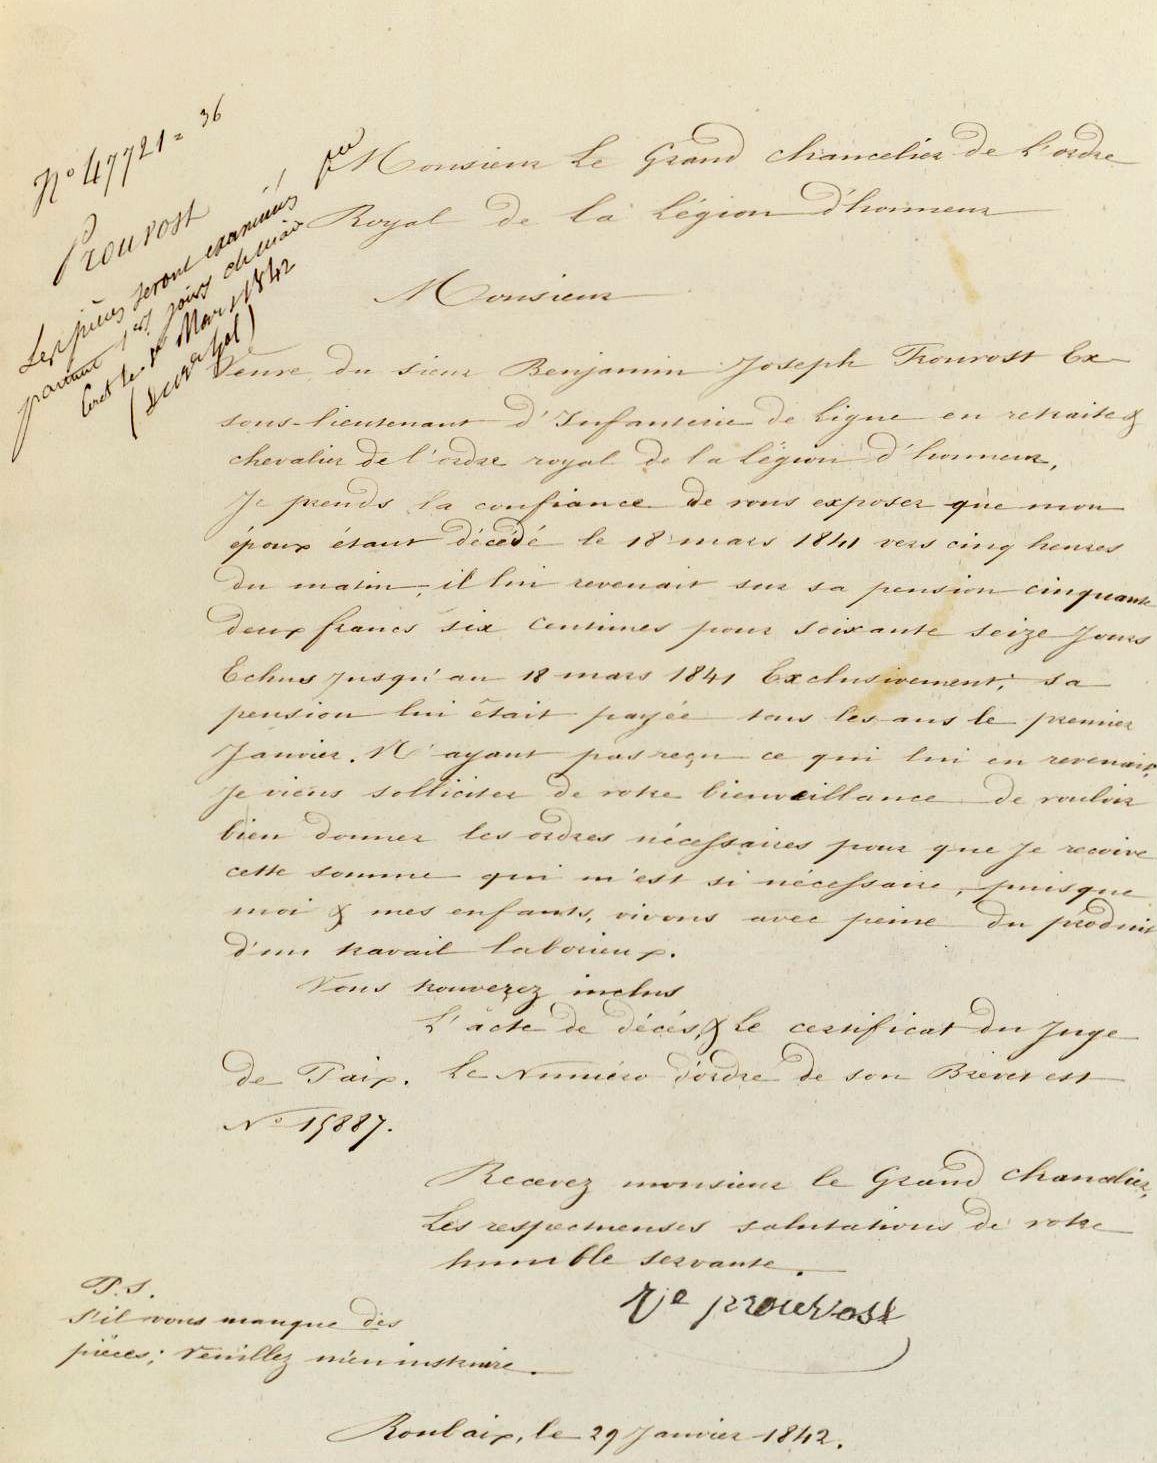 N° 47721 = 36
Prouvost
Les pièces seront examinées
pour
Monsieur Le Grand Chancelier de L'ordre
Royal de la Légion d'honneur
Monsieur
Veuve du sieur Benjamin Joseph Prouvost Ex-
sous-lieutenant d'Infanterie de Ligne en retraite &
chevalier de l'ordre royal de la Légion d'honneur,
Je prends la confiance de vous exposer que mon
époux étant décédé le 18 mars 1841 vers cinq heures
du matin, il lui revenait sur sa pension cinquante
deux francs six centimes pour soixante seize Jours
Echus jusqu'au 18 mars 1841 Exclusivement; sa
pension lui était payée tous les ans le premier
Janvier. N'ayant pas reçu ce qui lui en revenait,
Je viens solliciter de votre bienveillance de vouloir
bien donner les ordres nécessaires pour que Je reçoive
cette somme qui m'est si nécessaire, puisque
moi & mes enfants, vivons avec peine du produit
d'un travail laborieux.
Vous trouverez inclus
L'acte de décès, & le certificat du Juge
de Paix. Le Numéro d'ordre de son Brevet est
N° 15887.
Recevez monsieur le Grand Chancelier,
Les respectueuses salutations de votre
humble servante.
Ve prouvost
P.S.
S'il vous manque des
pièces; Veuillez m'en instruire.
Roubaix, le 29 Janvier 1842.